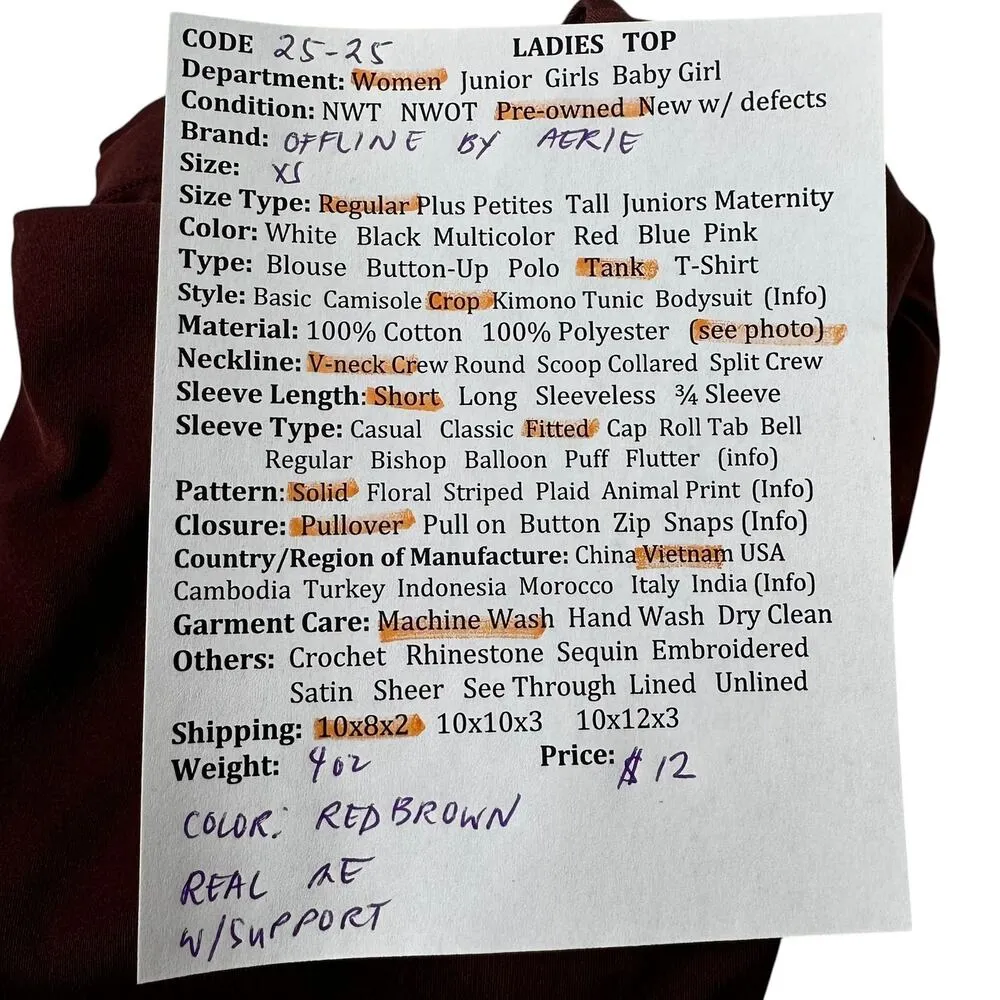 CODE 25-25 LADIES TOP
Department: Women Junior Girls Baby Girl
Condition: NWT NWOT Pre-owned New w/ defects
Brand: OFFLINE BY AERIE
Size: XS
Size Type: Regular Plus Petites Tall Juniors Maternity
Color: White Black Multicolor Red Blue Pink
Type: Blouse Button-Up Polo Tank T-Shirt
Style: Basic Camisole Crop Kimono Tunic Bodysuit (Info)
Material: 100% Cotton 100% Polyester (see photo)
Neckline: V-neck Crew Round Scoop Collared Split Crew
Sleeve Length: Short Long Sleeveless ¾ Sleeve
Sleeve Type: Casual Classic Fitted Cap Roll Tab Bell
Regular Bishop Balloon Puff Flutter (info)
Pattern: Solid Floral Striped Plaid Animal Print (Info)
Closure: Pullover Pull on Button Zip Snaps (Info)
Country/Region of Manufacture: China Vietnam USA
Cambodia Turkey Indonesia Morocco Italy India (Info)
Garment Care: Machine Wash Hand Wash Dry Clean
Others: Crochet Rhinestone Sequin Embroidered
Satin Sheer See Through Lined Unlined
Shipping: 10x8x2 10x10x3 10x12x3
Weight: 4oz Price: $12
COLOR: RED BROWN
REAL ME
W/SUPPORT